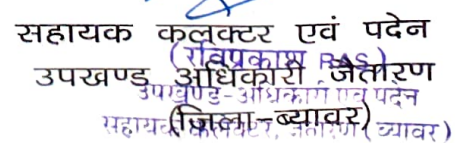 सहायक कलक्टर एवं पदेन
(रविप्रकाश RAS)
उपखण्ड अधिकारी जैतारण
उपखण्ड-अधिकारी एवं पदेन
(जिला-ब्यावर)
सहायक कलक्टर, जैतारण (ब्यावर)